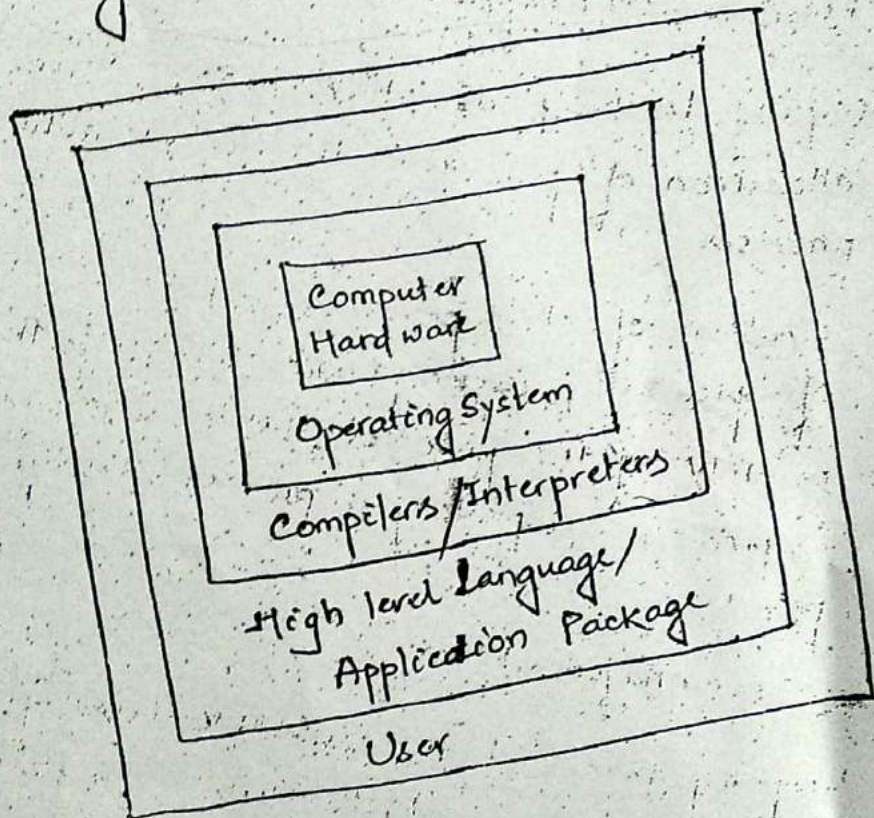 Computer
Hardware
Operating System
Compilers/Interpreters
High level Language/
Application Package
User